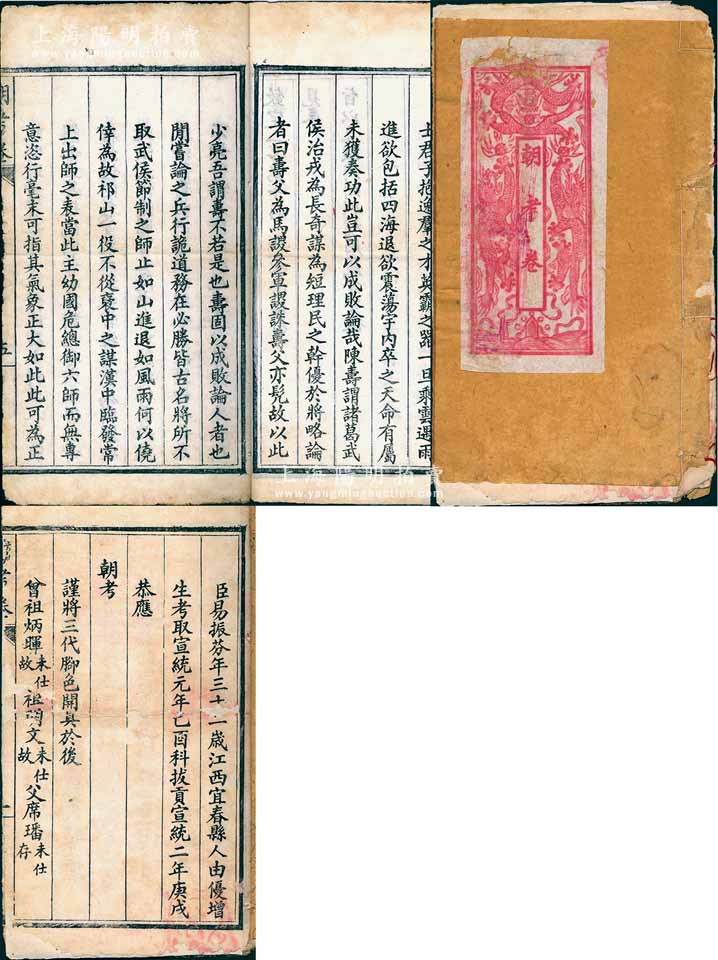 上海陽明拍賣
朝考卷
士君子抱逸羣之才英霸之器一旦乘雲遇雨
進欲包括四海退欲震蕩宇内卒之天命有屬
未獲奏功此豈可以成敗論哉陳壽謂諸葛武
侯治戎為長奇謀為短理民之幹優於將略論
者曰壽父為馬謖參軍謖誅壽父亦髡故以此
少亮吾謂壽不若是也壽固以成敗論人者也
閒嘗論之兵行詭道務在必勝皆古名將所不
取武侯節制之師止如山進退如風雨何以僥
倖為故祁山一役不從褒中之謀漢中臨發常
上出師之表當此主幼國危總御六師而無專
意恣行毫末可指其氣象正大如此此可為正
五
上海陽明拍賣
www.yangmingauction.com
臣易振芬年三十一歲江西宜春縣人由優增
生考取宣統元年己酉科拔貢宣統二年庚戌
恭應
朝考
謹將三代腳色開具於後
曾祖炳暉未仕故 祖蔚文未仕故 父席璠未仕存
朝考卷
一